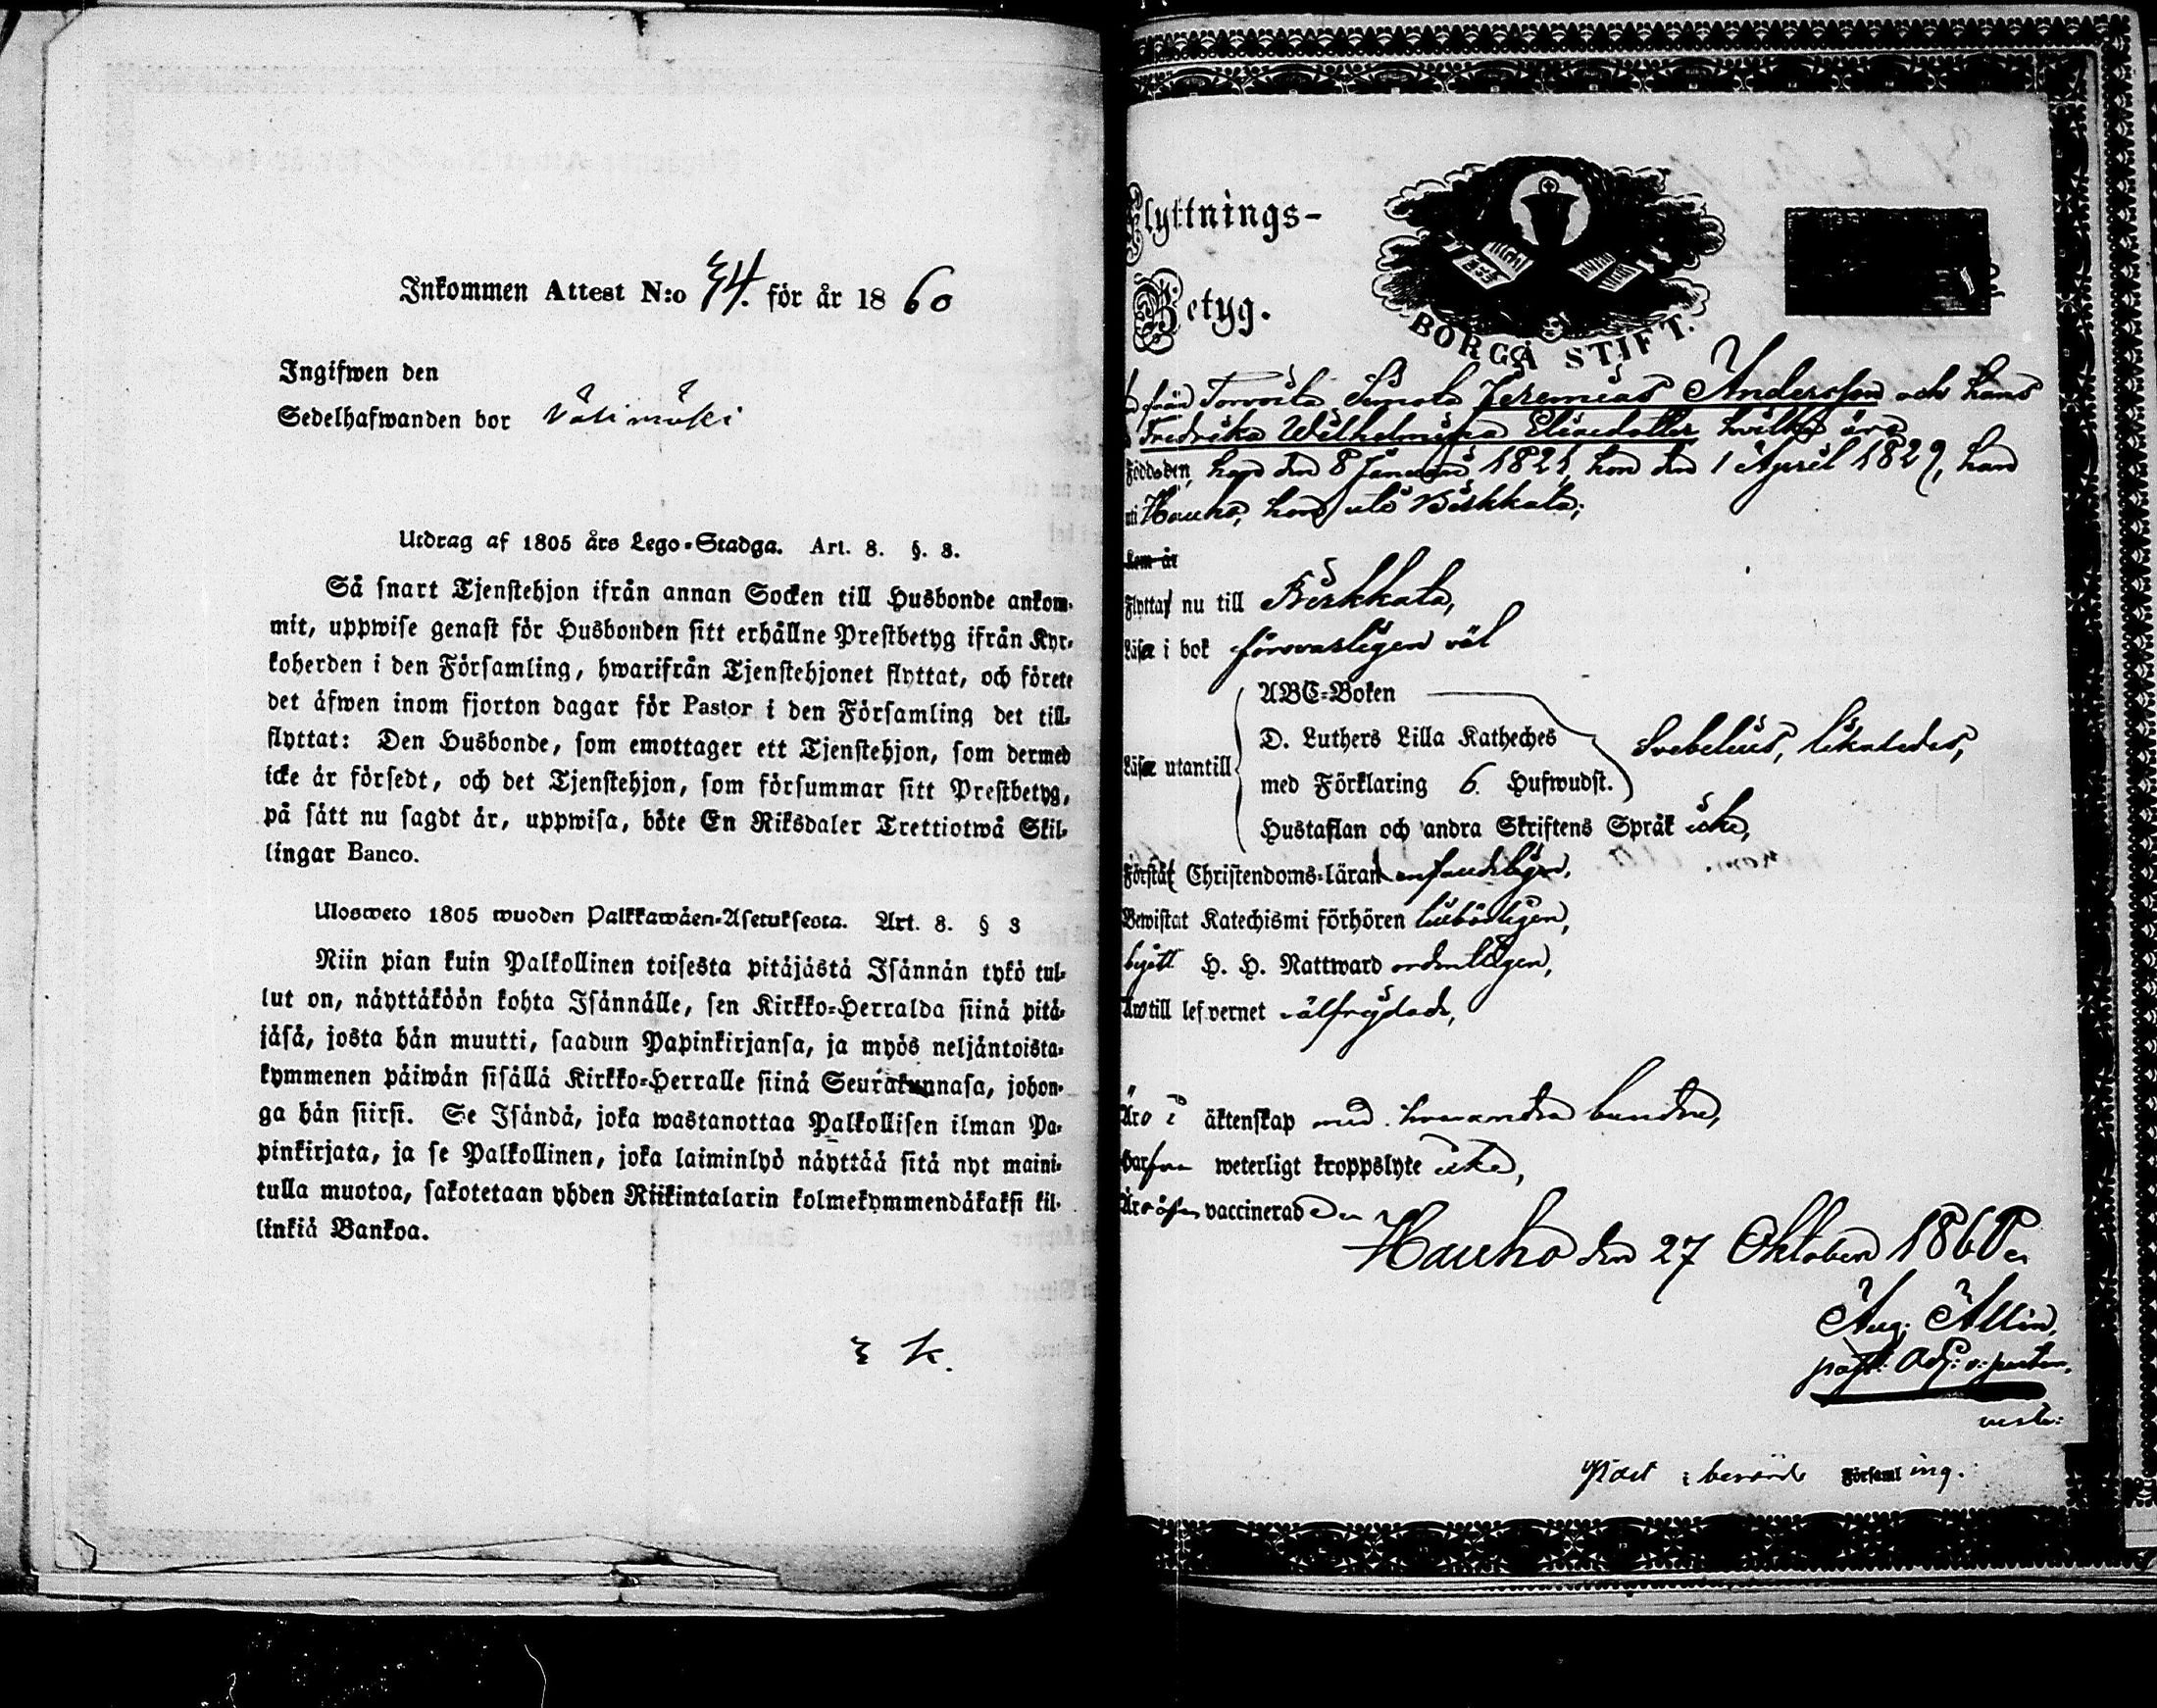 Inkommen Attest N:o 34. för år 1860
Ingifwen den
Sedelhafwanden bor
Utdrag af 1805 års Lego-Stadga. Art. 8. §. 3.
Så snart Tjenstehjon ifrån annan Socken till Husbonde ankom-
mit, uppwise genast för Husbonden sitt erhållne Prestbetyg ifrån Kyr-
koherden i den Församling, hwarifrån Tjenstehjonet flyttat, och förete
det äfwen inom fjorton dagar för Pastor i den Församling det till-
flyttat: Den Husbonde, som emottager ett Tjenstehjon, som dermed
icke är försedt, och det Tjenstehjon, som försummar sitt Prestbetyg,
på sätt nu sagdt är, uppwisa, böte En Riksdaler Trettiotwå Skil-
lingar Banco.
Ulosweto 1805 wuoden Palkkawäen-Asetuksesta. Art. 8. § 3
Niin pian kuin Palkollinen toisesta pitäjästä Isännän tykö tul-
lut on, näyttäköön kohta Isännälle, sen Kirkko-Herralda siinä pitä-
jäsä, josta hän muutti, saadun Papinkirjansa, ja myös neljäntoista-
kymmenen päiwän sisällä Kirkko-Herralle siinä Seurakunnasa, johon-
ga hän siirsi. Se Isändä, joka wastanottaa Palkollisen ilman Pa-
pinkirjata, ja se Palkollinen, joka laiminlyö näyttää sitä nyt maini-
tulla muotoa, sakotetaan yhden Riikintalarin kolmekymmendäkaksi kil-
linkiä Bankoa.
Flyttnings-
Betyg.
BORGÅ STIFT.
från Jeremias Andersson och hans
Fredrika Wilhelmina Eliaedotter hvilka äro
Födde den, han den 8 Januari 1821, hon den 1 April 1829, han
uti Hauho, hon uti Birkkala;
Kom år
Flytta nu till Birkkala,
Läsa i bok försvarligen väl
ABC-Boken
D. Luthers Lilla Katheches Svebelius, likaledes,
Läsa utantill
med Förklaring 6. Hufwudst.
Hustaflan och andra Skriftens Språk icke,
Förstå Christendoms-läran enfaldeligen,
Bewistat Katechismi förhören
begått H. H. Nattward ordentligen,
Äro till lefvernet välfrejdade,
Äro i äktenskap med hvarandra bundne,
Hafva weterligt kroppslyte icke,
Äro äfven vaccinerade
Hauho den 27 Oktober 1860.
Aug. Allin,
past. Adj.
Past i berörde Församling.